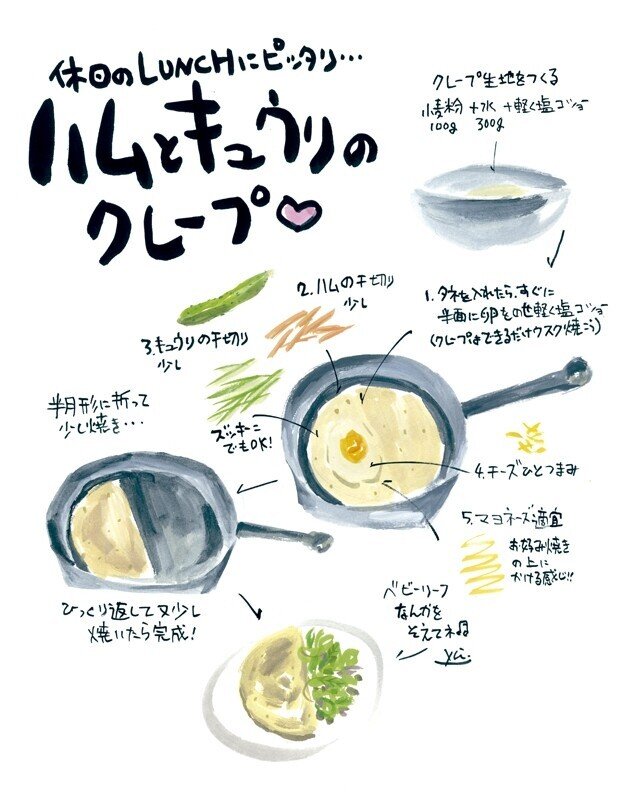 休日のLUNCHにピッタリ…
ハムとキュウリの
クレープ
クレープ生地をつくる
小麦粉+水+軽く塩コショー
100g 300g
1.タネを入れたら、すぐに
半面に卵をのせ軽く塩コショー
(クレープはできるだけウスク焼こう)
2.ハムの千切り
少し
3.キュウリの千切り
少し
ズッキーニ
でもOK!
4.チーズひとつまみ
5.マヨネーズ適宜
お好み焼き
の上に
かける感じ!!
半月形に折って
少し焼き…
ひっくり返して又少し
焼いたら完成!
ベビーリーフ
なんかを
そえてネ